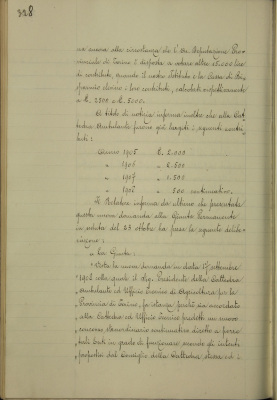 328
ed ancora alla circostanza che l'On. Deputazione Pro-
vinciale di Torino è disposta a votare altre 15.000 lire
di contributo, quando il nostro Istituto e la Cassa di Ri-
sparmio elevino i loro contributi, votandoli rispettivamente
a £. 2500 e £. 5000.
A titolo di notizia informa inoltre che alla Cat-
tedra Ambulante furono già largiti i seguenti contri-
buti:
Anno 1905 £. 2.000
" 1906 " 2.500
" 1907 " 1.500
" 190 " 500 continuativo.
Il Relatore informa da ultimo che presentata
questa nuova domanda alla Giunta Permanente
in seduta del 23 ottobre ha preso la seguente delibe-
razione:
" La Giunta:
" Vista la nuova domanda in data settembre
190 colla quale il Presidente della Cattedra
Ambulante ed Ufficio Tecnico di Agricoltura per la
Provincia di Torino, fa istanza perchè sia accordato
alla Cattedra ed Ufficio Tecnico predetti un nuovo
concorso straordinario continuativo diretto a porre
tali Enti in grado di funzionare secondo gli intenti
propostisi dal Consiglio della Cattedra stessa ed i